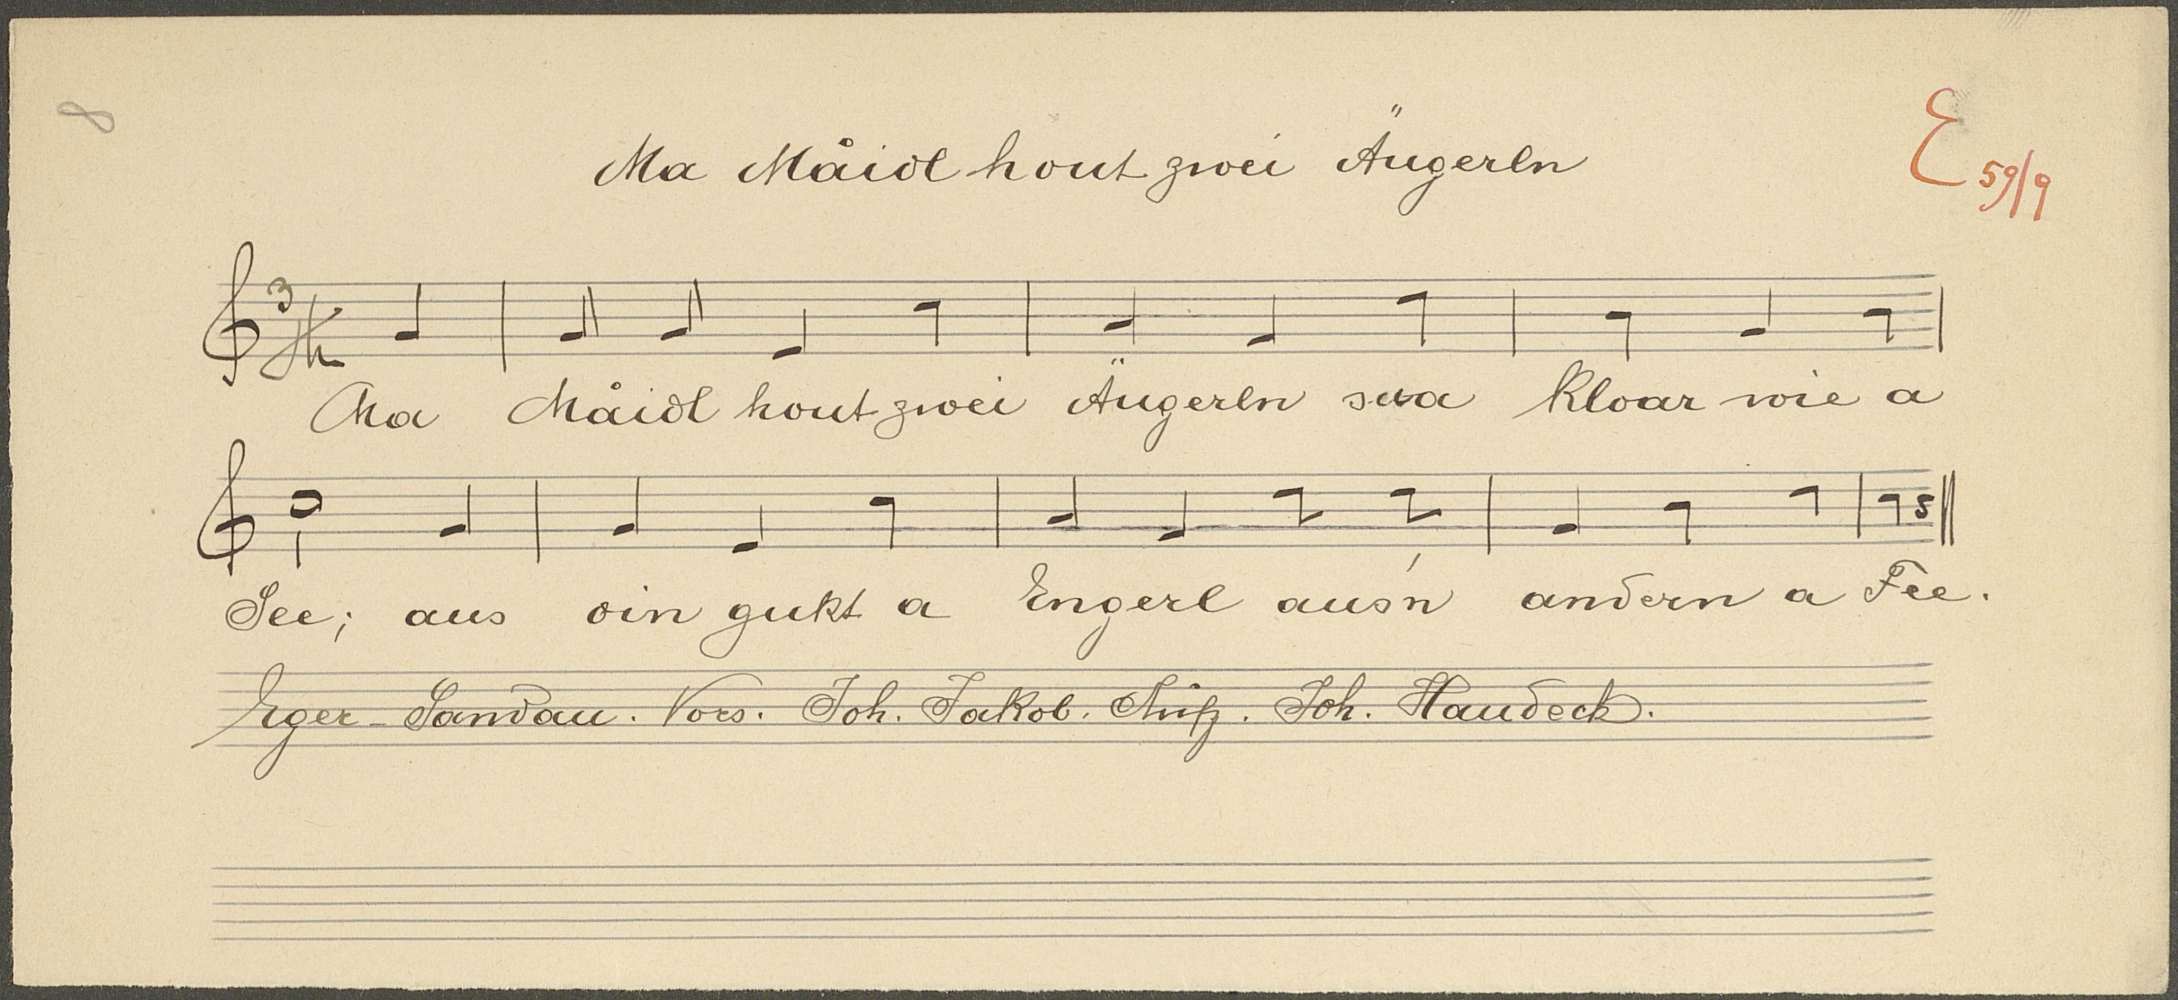 8
Ma Måidl hout zwei Äugerln
E 59/9
3/4
Ma Måidl hout zwei Äugerln sua kloar wie a
See; aus oin gukt a Engerl aus'n andern a Fee.
Eger-Sandau. Vors. Joh. Jakob. Aufz. Joh. Haudeck.